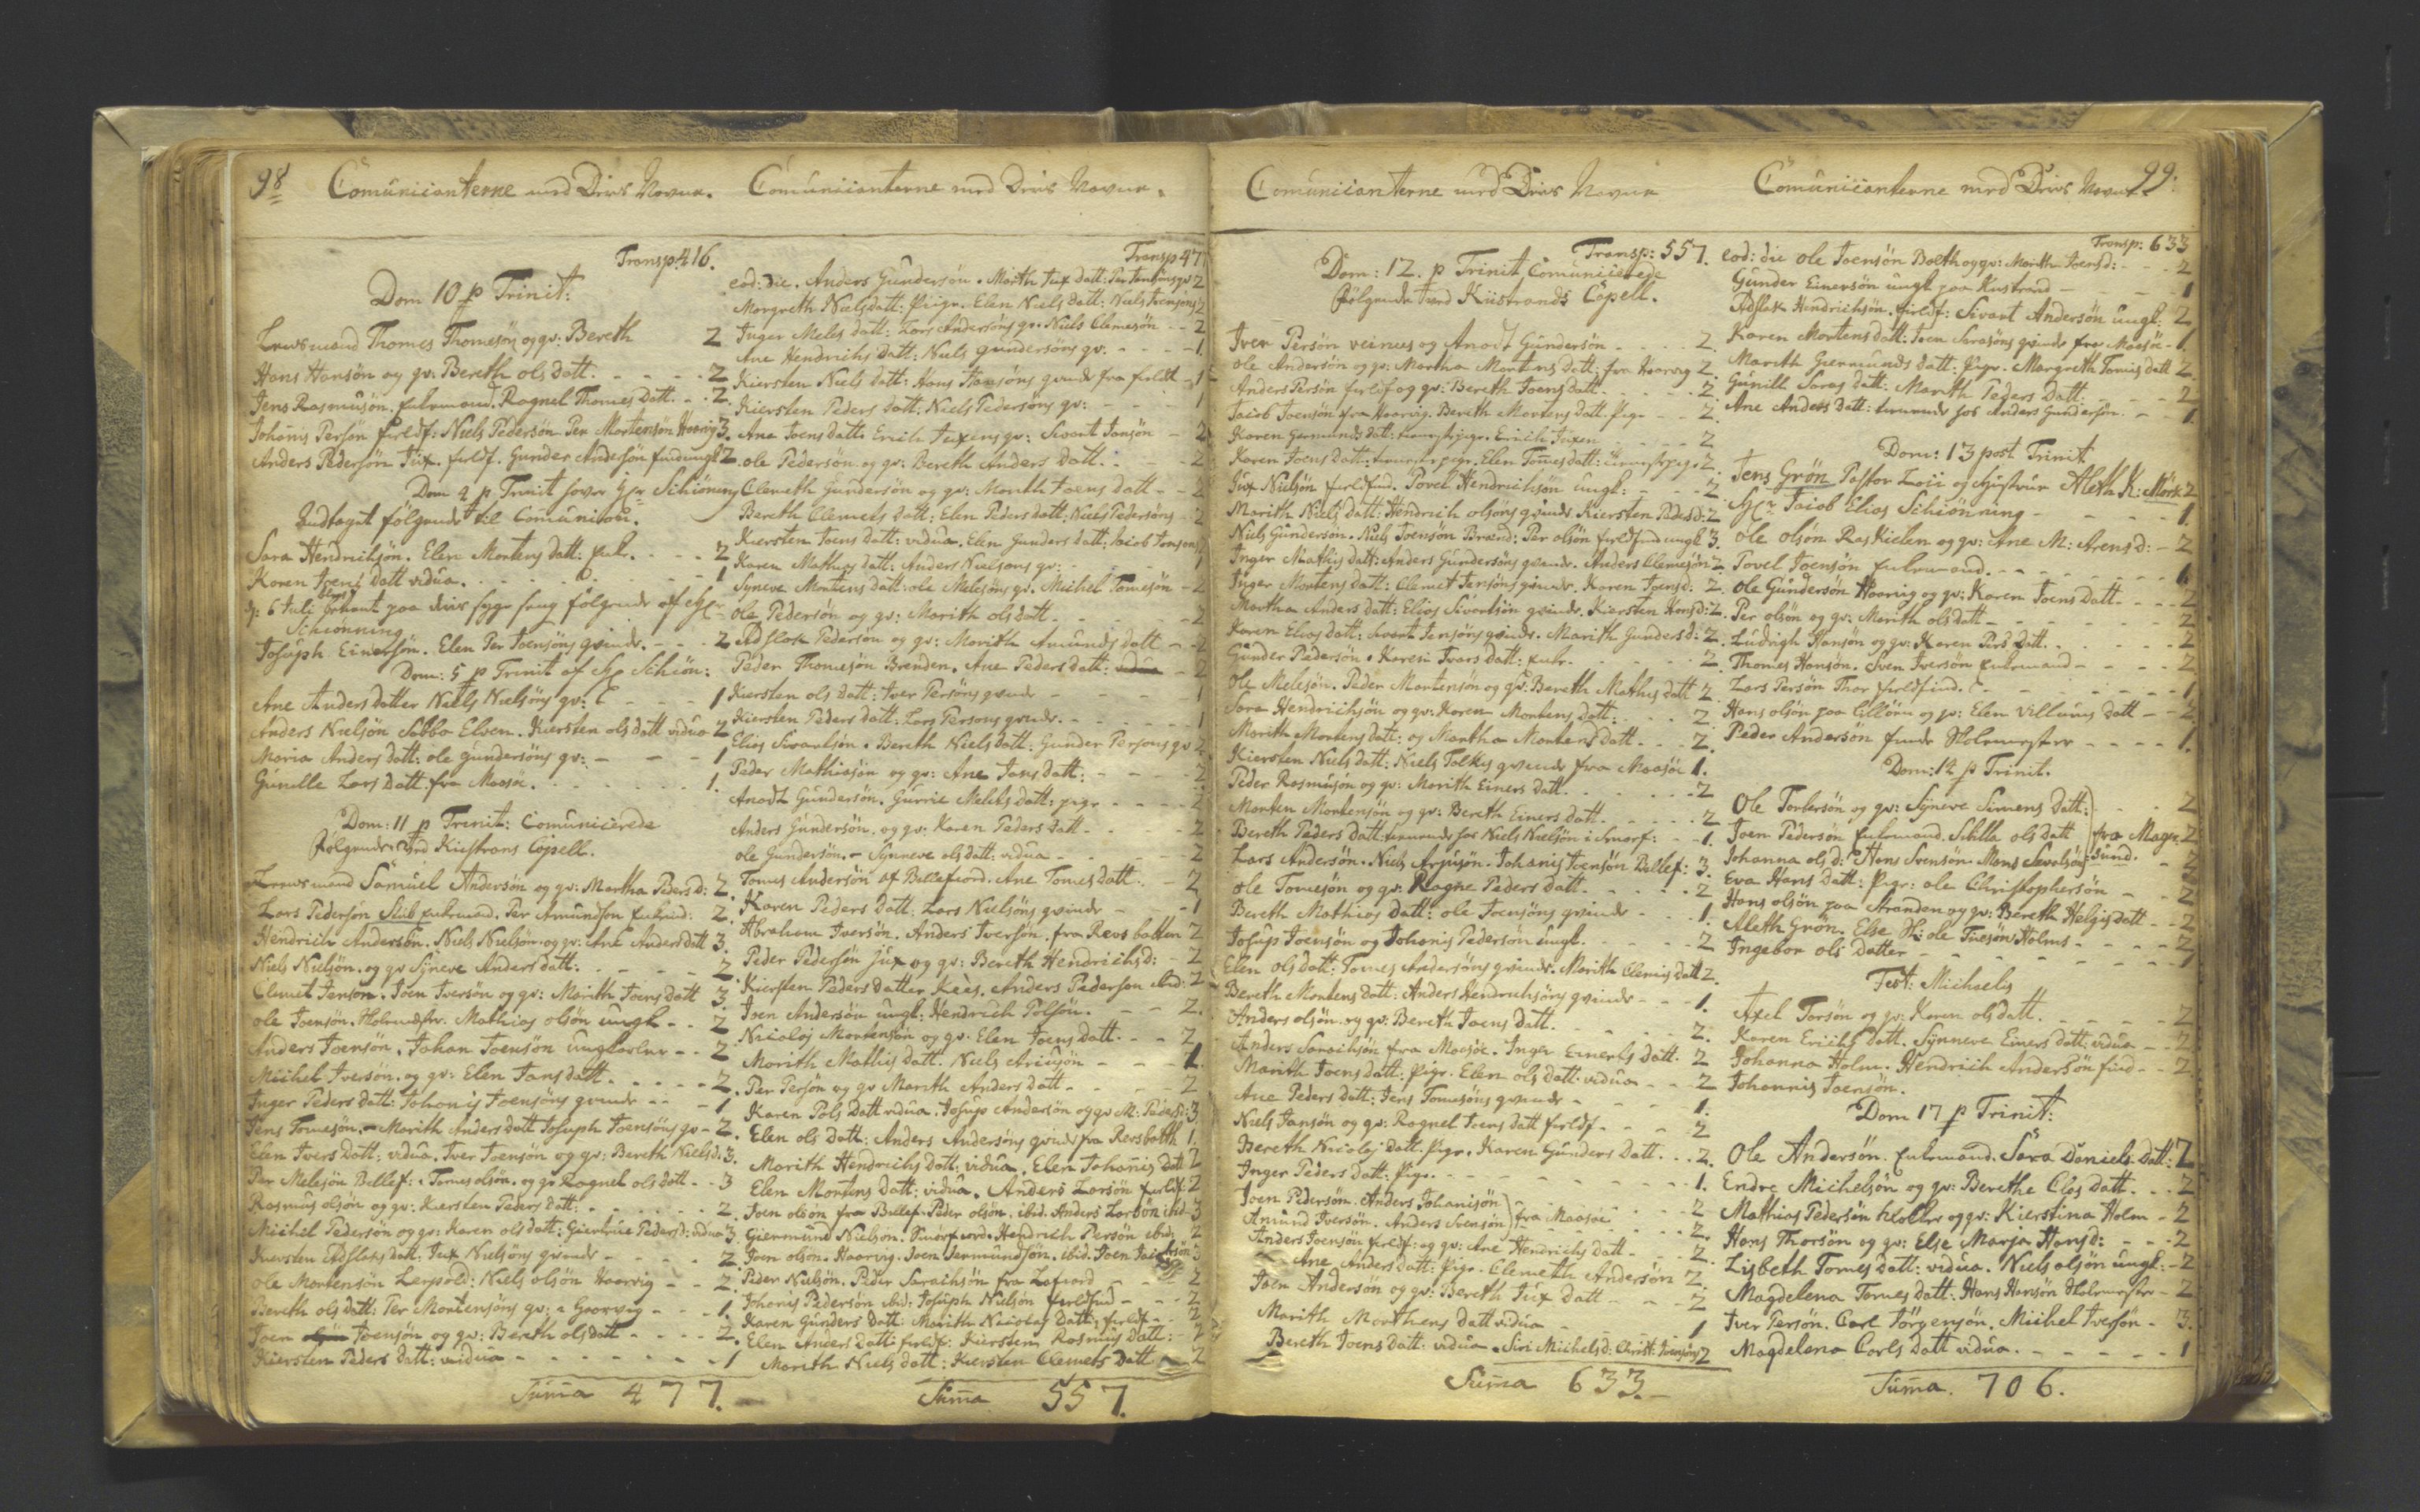 98
Comunicanterne med Deris Navne.
Transp: 416.
Dom 10 p Trinit:
Lensmand Thomes Thomesön og qv: Bereth 2
Hans Hansön og qv: Bereth ols datt. 2
Jens Rasmusön. Enkemand. Ragnel Thomes Datt. 2.
Johanis Persön fieldf: Niels Pedersön Per Mortenson Haarvig 3.
Anders Pedersön Jux. fieldf. Gunder Andersön 2.
Dom 4 p Trinit haver Hr Schiönning
Indtaget fölgende til Comunion.
Sara Hendrichsön. Elen Mortens datt: 2
Karen Joens datt vidua. 1
d: 6 Juli betient paa deris syge seng fölgende af Hr
Schiönning
Josuph Einersön. Elen Per Joensöns qvinde. 2
Dom: 5 p Trinit af Hr Schiön:
Ane Anders datter Niels Nielsöns qv: 1
Anders Nielsön Sabbo Elven. Kiersten ols datt vidua 2
Maria Anders datt: ole gundersöns qv: 1
Gunille Lars datt. fra Maasöe. 1.
Dom: 11 p Trinit: Comunicerede
Fölgende ved Kiestrans Capell.
Lensmand Samuel Andersön og qv: Martha Peders d: 2.
Lars Pedersön Skib Enkemand. Per Amundson 2.
Hendrich Andersön. Niels Nielsön. og qv: Ane Anders datt 3.
Niels Nielsön. og qv Syneve Anders datt: 2
Clemet Jenson. Joen Iversön og qv: Marith Joens datt 3.
ole Joensön. Skolemester. Mathias olsön ungk 2
Anders Joensön. Johan Joensön ungkarler 2
Michel Iversön. og qv: Elen Jans datt. 2.
Inger Peders datt: Johanis Joensöns qvinde 1
Jens Tomesön. Marith Anders datt Josuph Joensöns qv 2.
Elen Ivers datt: vidua. Iver Joensön og qv: Bereth Niels d: 3.
Per Melesön Bellef: Tomes olsön. og qv Ragnel ols datt 3
Rasmus olsön og qv: Kiersten Peders datt: 2.
Michel Pedersön og qv: Karen ols datt: Giertrue Peders d: vidua 3.
Kiersten Adslaks datt: Jux Nielsöns qvinde 2.
ole Mortensön Leopold: Niels olsön Haarvig 2.
Bereth ols datt: Per Mortensöns qv: Haarvig 1.
Joen Joensön og qv: Bereth ols datt 2.
Kiersten Peders datt: vidua 1
Summa 477.
Comunicanterne med Deris Navne.
Transp 477
eod: die. Anders Gundersön. Marith Jux datt: 2
Margreth Niels datt: Pige. Elen Niels datt: Niels 2
Inger Meles datt: Lars Andersöns qv. Niels Clemesön 2
Ane Hendrichs datt: Niels gundersöns qv. 1.
Kiersten Niels datt: Hans Hansöns qvinde fra fieldt 1
Kiersten Peders datt: Niels Pedersöns qv: 1
Ane Joens datt. Erich Juxens qv: Sivart Jonsön 2
ole Pedersön og qv: Bereth Anders datt. 2
Clemeth Gundersön og qv: Marith Joens datt 2
Bereth Clemets datt: Elen Peders datt; Niels Pedersöns 2
Kiersten Joens datt: vidua. Elen Gunders datt: Jacob
Karen Mathies datt: Anders Nielsons qv: 1
Syneve Mortens datt: ole Melesöns qv. Michel Tomesön 2
ole Pedersön og qv: Marith ols datt. 2
Adslak Pedersön og qv: Marith Amunds datt 2
Peder Thomesön Brenden. Ane Peders datt: 2
Kiersten ols datt: Iver Persöns qvinde 1
Kiersten Peders datt: Lars Persons qvinde. 1
Elias Sivartsön. Bereth Niels datt: Gunder Persons qv
Peder Mathiasön og qv: Ane Jans datt: 2
Anodt Gundersön. Gurrie Melets datt: pige 2
Anders Gundersön. og qv: Karen Peders datt 2
ole Gundersön. Synneve ols datt: vidua 2
Tomes Andersön af Bellefiord. Ane Tomes datt. 2
Karen Peders datt. Lars Nielsöns qvinde 1
Abraham Iversön. Anders Iversön. fra Revsbatten 2
Peder Pedersön Jux og qv: Bereth Hendrichs d: 2
Kiersten Peders datter Kees. Anders Pederson ibid: 2
Joen Andersön ungk: Hendrich Polsön. 2.
Nicolai Mortensön og qv. Elen Joens datt. 2
Marith Mathis datt. Niels Aricusön 2.
Per Persön og qv Marith Anders datt 2
Karen Pols datt vidua. Josup Andersön og qv M: Peders: 3
Elen ols datt: Anders Andersöns qvinde fra Revsbatth 1.
Marith Hendrichs datt: vidua. Elen Johanis datt 2
Elen Mortens datt: vidua. Anders Larsön fieldf: 2
Joen olson fra Bellef: Peder olsön. ibid. Anders Larsön ibid 3
Giermund Nielson. Smörfiord. Hendrich Persön ibid: 2
Joen olson. Haarvig. Joen Jermundsön. ibid. Joen Jacobsön 3
Peder Nielsön. Peder Saraichsön fra Lafiord 2
Johanis Pedersön ibid: Josuph Nielson fieldfind 2
Karen Gunders datt: Marith Nicolai datt: fieldf 2
Elen Anders datt: fieldf: Kiersten Rasmus datt: 2
Marith Niels datt: Kiersten Clemets datt 2
Summa 557.
Comunicanterne med Deris Navne
Transp: 557.
Dom: 12. p Trinit Comunicerede
Fölgende ved Kiistrands Capell.
Iver Persön veinus og Anodt Gundersön 2.
ole Andersön og qv: Martha Mortens datt: fra Haarvig 2.
Anders Persön fieldf og qv: Bereth Joens datt. 2.
Jacob Joensön fra Haarvig. Bereth Mortens datt. Pige 2.
Karen Germunds datt: Erich Juxen 2
Karen Joens datt: Elen Tomes datt: 2.
Jux Nielsön fieldfind. Povel Hendrichsön ungk: 2.
Marith Niels datt: Hendrich olsöns qvinde Kiersten Peders d: 2
Niels Gundersön. Niels Joensön Brand: Per olsön fieldfind ungk 3.
Inger Mathis datt: Anders Gundersöns qvinde. Anders Clemesön 2
Inger Mortens datt: Clemet Jensöns qvinde. Karen Joens d: 2.
Martha Anders datt: Elias Sivertsön qvinde. Kiersten Hans d: 2.
Karen Elias datt: Sivart Jensöns qvinde. Marith Gunders d: 2.
Gunder Pedersön. Karen Ivars datt: 2.
Ole Melesön. Peder Mortensön og qv: Bereth Mathis datt 2
Sara Hendrichsön og qv: Karen Mortens datt: 2
Marith Mortens datt: og Martha Mortens datt 2.
Kiersten Niels datt: Niels Tolkes qvinde fra Maasöe 1.
Peder Rasmusön og qv: Marith Einers datt. 2
Morten Mortensön og qv: Bereth Einers datt 2.
Bereth Peders datt: tienende hos Niels Nielsön i Smorf: 1.
Lars Andersön. Niels Arsusön. Johanis Joensön Bellef: 3.
ole Tomesön og qv. Ragne Peders datt. 2
Bereth Mathias datt: ole Joensöns qvinde 1.
Josup Joensön og Johanis Pedersön ungk. 2
Elen ols datt: Tomes Andersöns qvinde. Marith Clemis datt 2.
Bereth Mortens datt: Anders Hendrichsöns qvinde 1.
Anders olsön. og qv: Bereth Joens datt. 2.
Anders Saraichsön fra Maasöe. Inger Einerts datt. 2
Marith Joens datt: Pige. Elen ols datt: vidua 2
Ane Peders datt: Jens Tomesöns qvinde 1.
Niels Jansön og qv: Ragnel Joens datt fieldf 2
Bereth Nicolai datt. Pige. Karen Gunders datt. 2.
Inger Peders datt: Pige. 1.
Joen Pedersön. Anders Johanisön 2
Amund Iversön. Anders Svensön fra Maasöe 2.
Anders Joensön fieldf: og qv: Ane Hendrichs datt 2.
Ane Anders datt: Pige. Clemeth Andersön 2.
Joen Andersön og qv: Bereth Jux datt 2
Marith Morthens datt vidua 1
Bereth Joens datt: vidua. Siri Michels d: Christ: Ivensöns 2
Summa 633.
Comunicanterne med Deris Navne.
99:
Transp: 633
eod: die ole Joensön Baeth og qv: Marith Joens d: 2
Gunder Einersön ungk paa Kiistrand 1
Adslak Hendrichsön. fieldf: Sivart Andersön ungk: 2
Karen Mortens datt: Joen Sarasöns qvinde fra Maasöe 1.
Marith Giermunds datt: Pige. Margreth Tomis datt 2.
Gunill Saras datt: Marith Peders datt: 2
Ane Anders datt: tienende hos Anders Gundersön. 1.
Dom: 13 post Trinit
Jens Grön Pastor Loci og Hustrue Aleth K: Mörk 2
Hr Jacob Elias Schiönning 1.
ole olsön Raskielen og qv: Ane M: Arens d: 2
Povel Joensön Enkemand. 1.
Ole Gundersön Haarvig og qv: Karen Joens datt 2
Per olsön og qv: Marith ols datt 2
Ludvigh Hansön og qv: Karen Pers datt. 2
Thomes Hansön. Sven Iversön Enkemand 2
Lars Persön Thor fieldfind. 1
Hans olsön paa Lillöen og qv: Elen Villums datt 2
Peder Anderson Skolemester 1.
Dom: 14 p Trinit.
Ole Torlersön og qv: Syneve Simens datt: 2
Joen Pedersön Enkemand. Sibilla ols datt fra Mage 2
Johanna ols d: Hans Svensön. Mons Sevalsön sund. 3
Eva Hans datt: Pige: ole Christophersön 2
Hans olsön paa Stranden og qv: Bereth Helgis datt 2
Aleth Grön. Else H: ole Tuesön Holms 2
Ingebor ols datter 1
Fest: Michaelis
Axel Torsön og qv: Karen ols datt. 2
Karen Erichs datt. Synneve Einers datt: vidua 2
Johanna Holm. Hendrich Andersön find 2
Johannis Joensön.
Dom 17 p Trinit:
Ole Andersön. Enkemand. Sara Daniels datt: 2
Endre Michelsön og qv: Berethe Clas datt. 2
Mathias Pedersön Klokker og qv: Kierstina Holm 2
Hans Thorsön og qv: Else Marja Hans d: 2
Lisbeth Tomes datt: vidua. Niels olsön ungk: 2
Magdelena Tomes datt: Hans Hansön Skolemester 2
Iver Persön. Carl Jörgensön. Michel Iversön 3.
Magdelena Carls datt vidua. 1
Summa. 706.